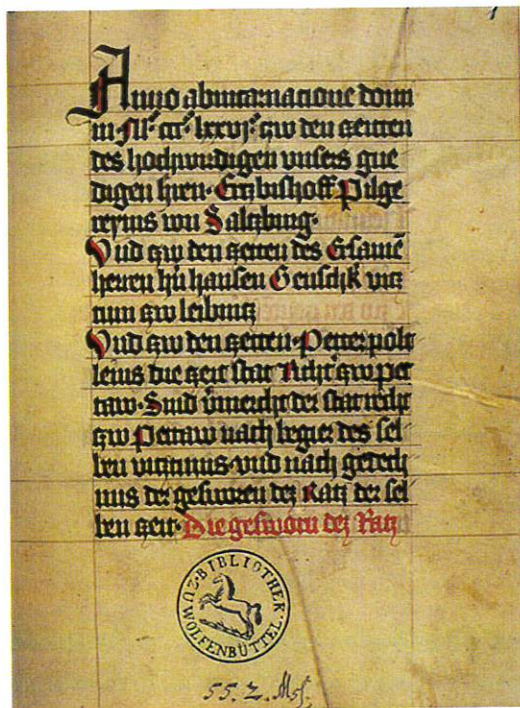 Anno ab incarnacione domi
ni Mᵒ cccᵒ lxxvjᵒ zw den zeiten
des hochwirdigen vnsers gne
digen hren Erczbischoff Pilge
reyms von Saltzburg.
Vnd zw den zeiten des Ersamē
herren
tum zw leibnitz
Vnd zw den zeiten Petter polt
leins die zeit stat Richt zw pet
taw. Sind der stat recht
zw Pettaw nach begier des sel
ben vicztumbs vnd nach gedech
nus der gesworen dez Ratz der sel
ben zeit. Die gesworn dez Ratz
ZU·BIBLIOTHEK
WOLFENBÜTTEL
55. 2. Msſ.